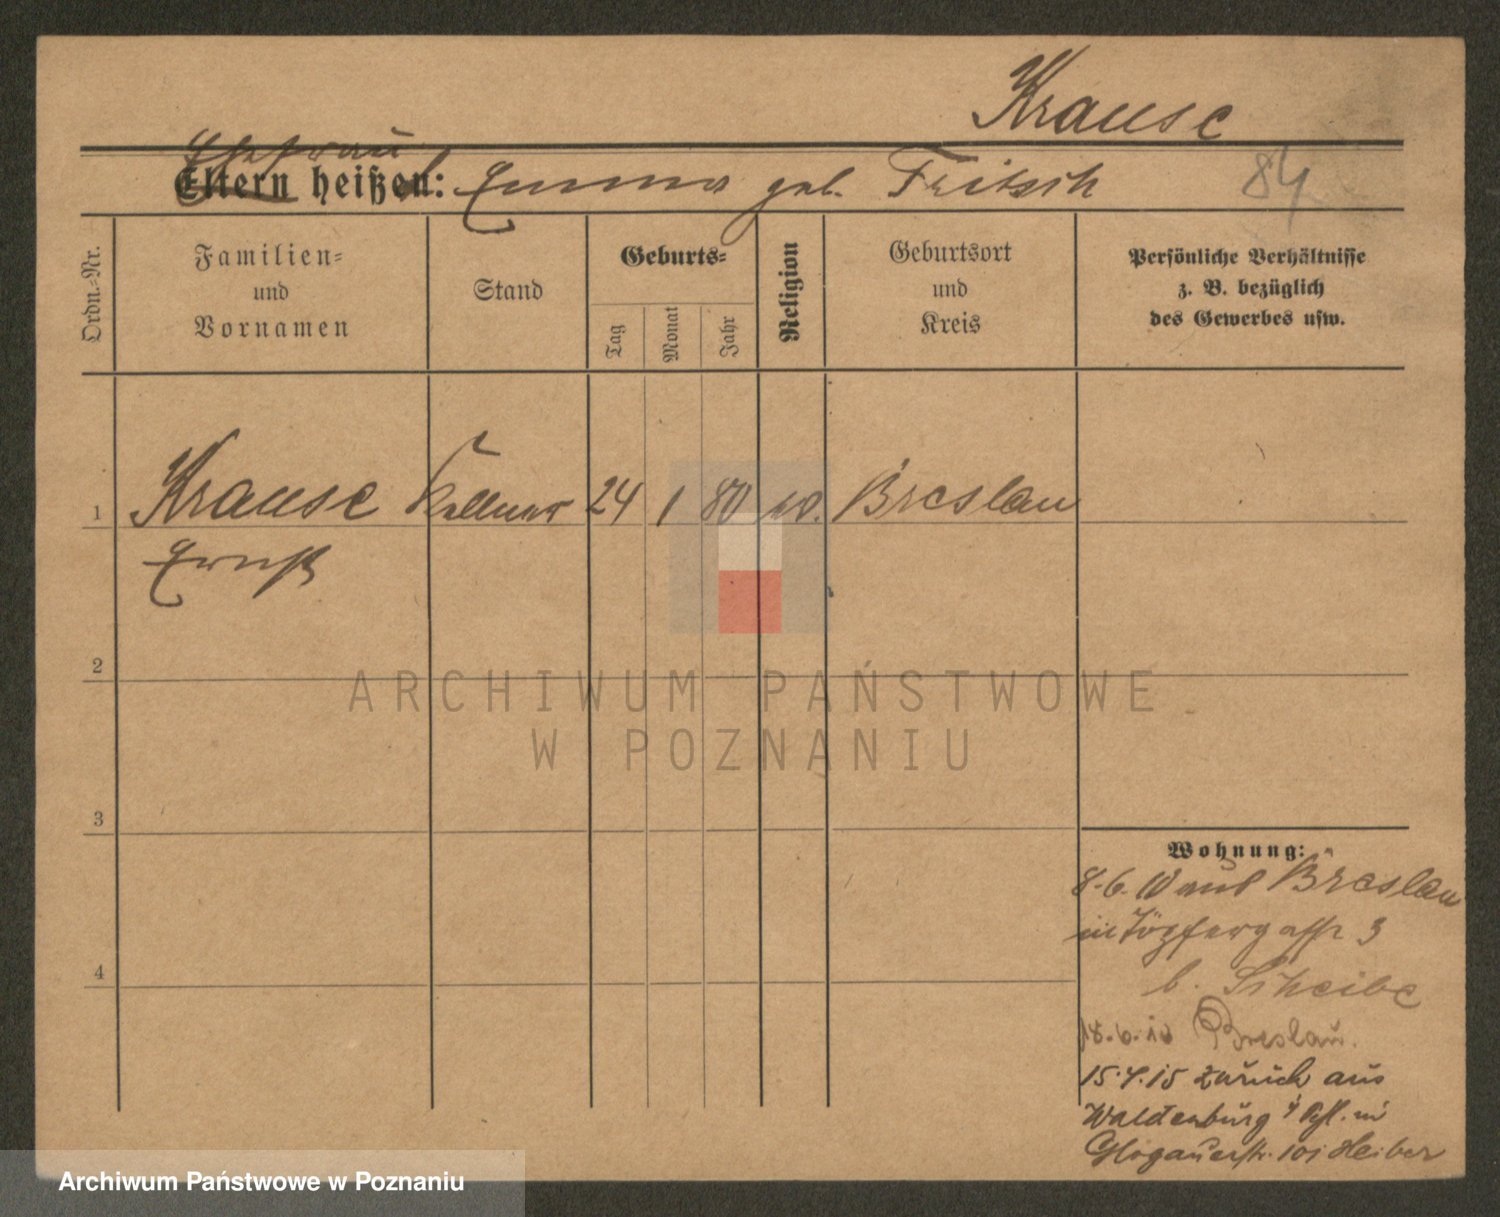 Krause
Ehefrau
Eltern heißen: Emma geb. Fritsch 84
Ordn.-Nr.
Familien-
und
Vornamen
Stand
Geburts-
Tag
Monat
Jahr
Religion
Geburtsort
und
Kreis
Persönliche Verhältnisse
z. B. bezüglich
des Gewerbes usw.
1 Krause Kellner 24 1 80 Breslau
Ernst
2
ARCHIWUM PAŃSTWOWE
W POZNANIU
3
4
Wohnung:
8.6.10 aus Breslau
in Töpfergasse 3
b. Scheibe
18.6.10 Breslau.
15.4.15 zurück aus
Waldenburg i/Schl. in
Glogauerstr. 101 Heiber
Archiwum Państwowe w Poznaniu